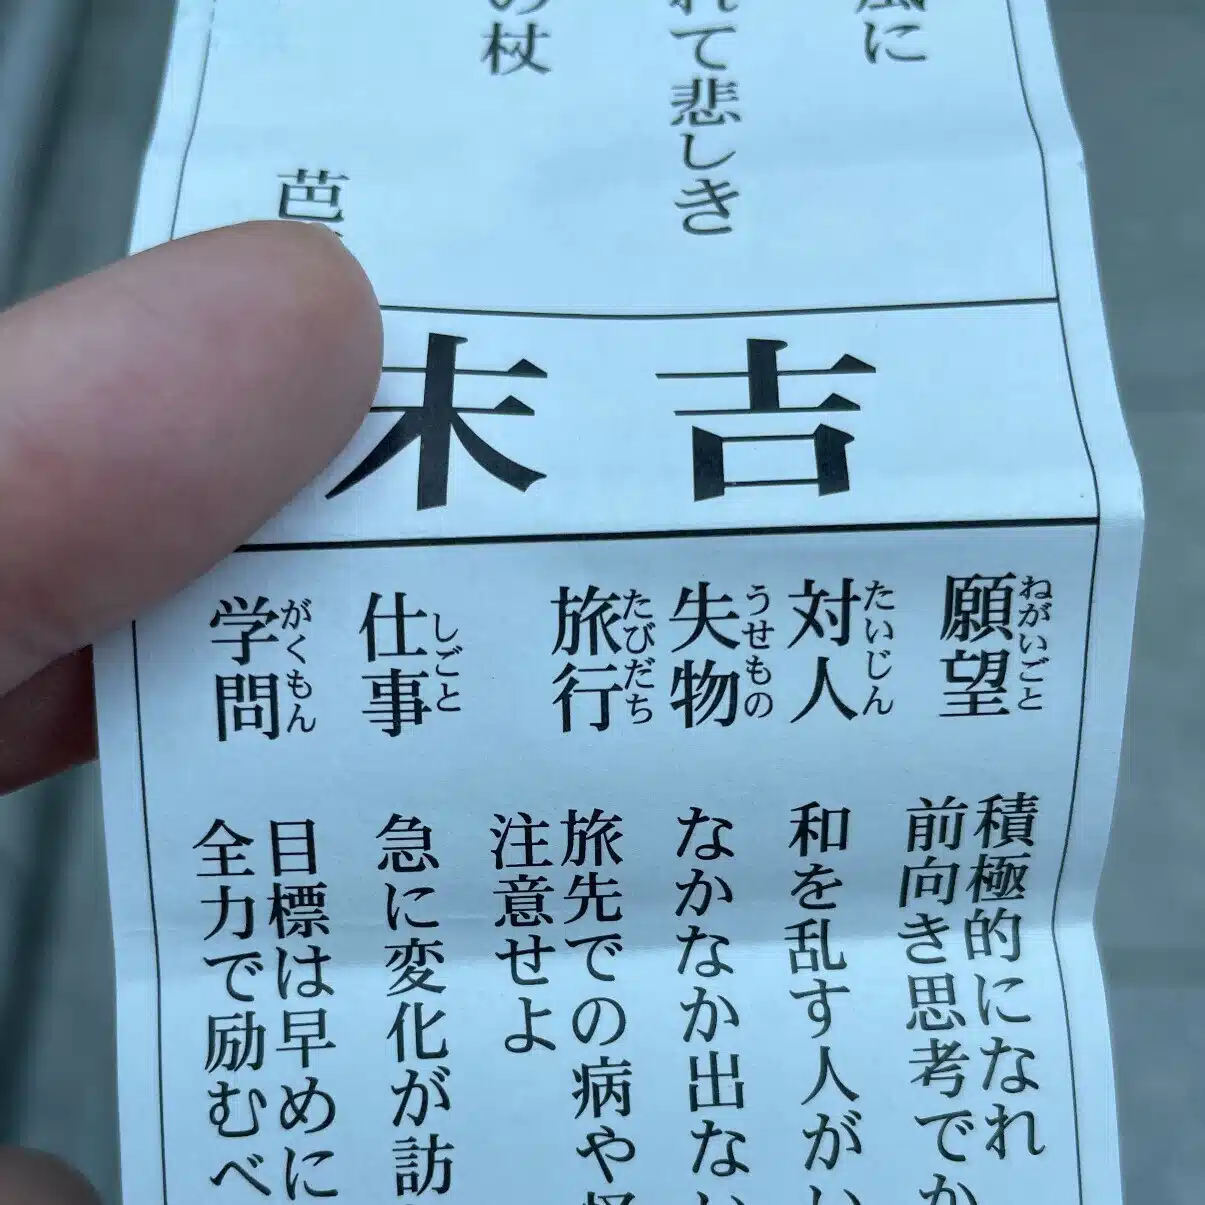 風に
れて悲しき
の杖
芭
末吉
願望 ねがいごと
積極的になれ
前向き思考で
対人 たいじん
和を乱す人が
失物 うせもの
なかなか出な
旅行 たびだち
旅先での病や
注意せよ
仕事 しごと
急に変化が訪
学問 がくもん
目標は早めに
全力で励むべ